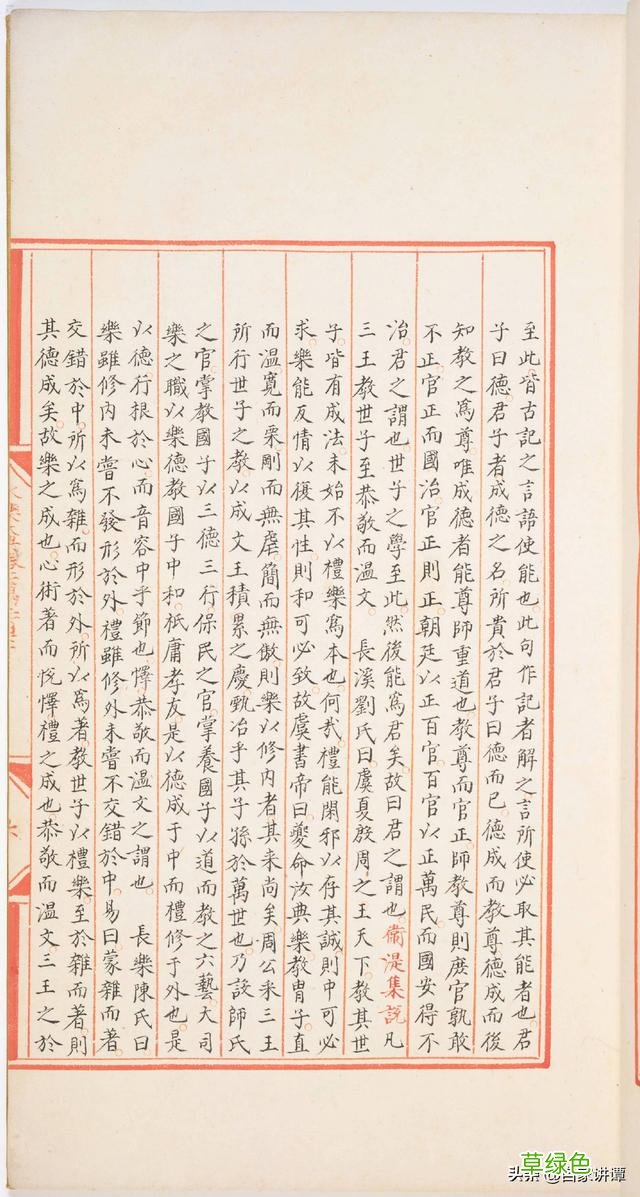 至此皆古記之言語使能也此句作記者解之言所使必取其能者也君
子曰德君子者成德之名所貴於君子曰德而已德成而教尊德成而後
知教之為尊唯成德者能尊師重道也教尊而官正師教尊則庶官孰敢
不正官正而國治官正則正朝廷以正百官百官以正萬民而國安得不
治君之謂也世子之學至此然後能為君矣故曰君之謂也衛湜集說凡
三王教世子至恭敬而溫文 長溪劉氏曰虞夏殷周之王天下教其世
子皆有成法未始不以禮樂為本也何哉禮能閑邪以存其誠則中可必
求樂能反情以復其性則和可必致故虞書帝曰夔命汝典樂教胄子直
而溫寬而栗剛而無虐簡而無傲則樂以修內者其来尚矣周公采三王
所行世子之教以成文王積累之慶甄冶乎其子孫於萬世也乃設師氏
之官掌教國子以三德三行保民之官掌養國子以道而教之六藝大司
樂之職以樂德教國子中和祇庸孝友是以德成于中而禮修于外也是
以德行根於心而音容中乎節也懌恭敬而溫文之謂也 長樂陳氏曰
樂雖修內未嘗不發形於外禮雖修外未嘗不交錯於中易曰蒙雜而著
交錯於中所以為雜而形於外所以為著教世子以禮樂至於雜而著則
其德成矣故樂之成也心術著而悅懌禮之成也恭敬而溫文三王之於
草绿色
头条 @百家讲谭